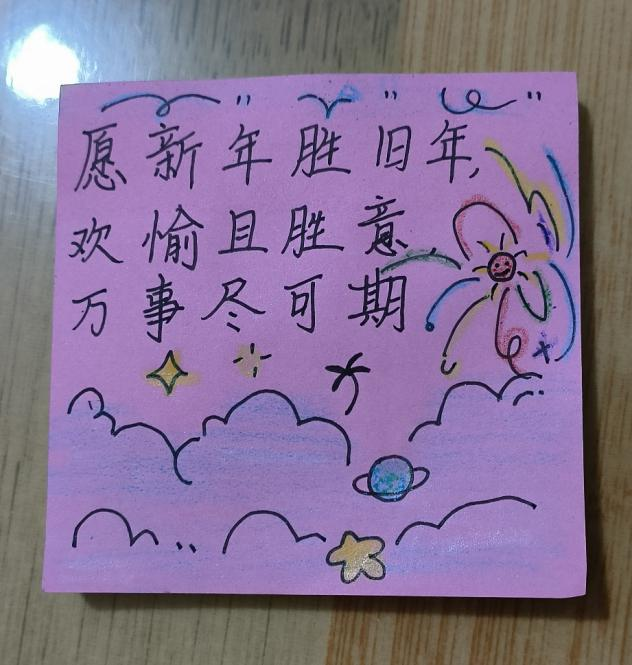 愿新年胜旧年,
欢愉且胜意
万事尽可期